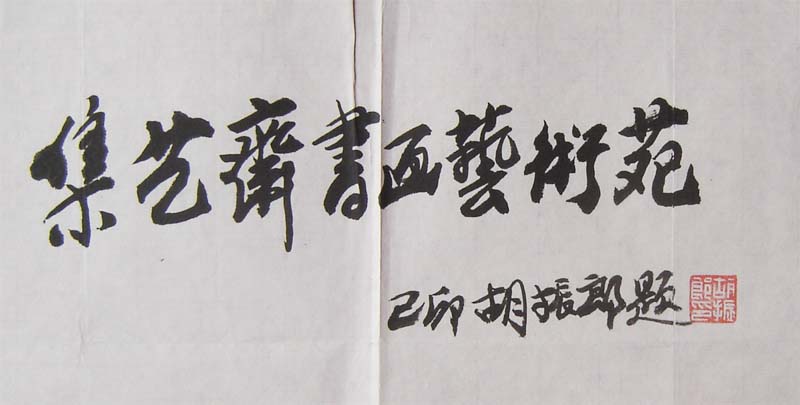 集艺齋書画藝術苑
己卯胡振郎題
胡振郎印